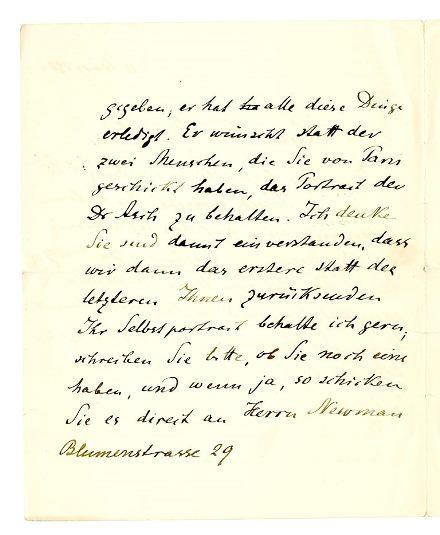 gegeben, er hat alle diese Dinge
erledigt. Er wünscht statt der
zwei Menschen, die Sie von Paris
geschickt haben, das Portrait der
Dr Asch zu behalten. Ich denke
Sie sind damit einverstanden, dass
wir dann das erstere statt des
letzteren Ihnen zurücksenden
Ihr Selbstportrait behalte ich gern,
schreiben Sie bitte, ob Sie noch eins
haben, und wenn ja, so schicken
Sie es direct an Herrn Newman
Blumenstrasse 29